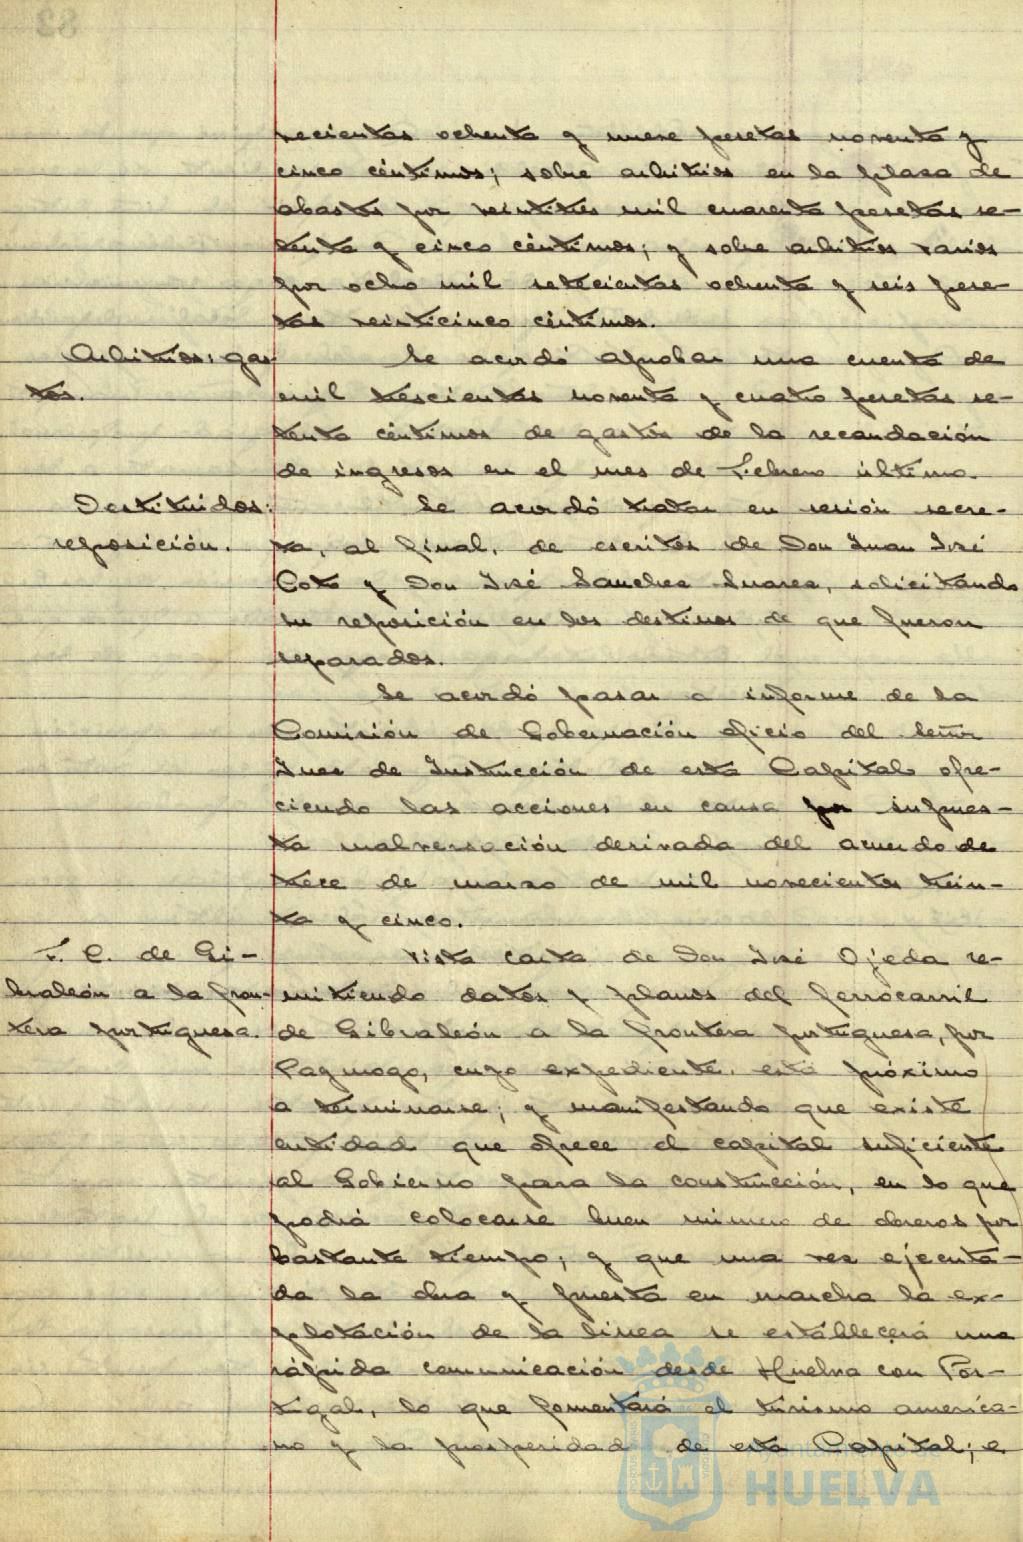 vecientas ochenta y nueve pesetas noventa y
cinco céntimos; sobre arbitrios en la plaza de
abastos por veintitres mil cuarenta pesetas se-
tenta y cinco céntimos; y sobre arbitrios varios
por ocho mil setecientas ochenta y seis pese-
tas veinticinco céntimos.
Arbitrios: gas-
tos.
Se acordó aprobar una cuenta de
mil trescientas noventa y cuatro pesetas se-
tenta céntimos de gastos de la recaudación
de ingresos en el mes de Febrero último.
Destituidos:
reposición.
Se acordó tratar en sesión secre-
ta, al final, de escritos de Don Juan José
Coto y Don José Sanchez Suarez, solicitando
su reposición en los destinos de que fueron
separados.
Se acordó pasar a informe de la
Comisión de Gobernación oficio del Señor
Juez de Instrucción de esta Capital ofre-
ciendo las acciones en causa por supues-
ta malversación derivada del acuerdo de
trece de marzo de mil novecientos trein-
ta y cinco.
F. C. de Gi-
braleón a la fron-
tera portuguesa.
Vista carta de Don José Ojeda re-
mitiendo datos y planos del ferrocarril
de Gibraleón a la frontera portuguesa, por
Paymogo, cuyo expediente está próximo
a terminarse; y manifestando que existe
entidad que ofrece el capital suficiente
al Gobierno para la construcción, en lo que
podrá colocarse buen número de obreros por
bastante tiempo; y que una vez ejecuta-
da la obra y puesta en marcha la ex-
plotación de la línea se establecerá una
rápida comunicación desde Huelva con Por-
tugal, lo que fomentará el turismo america-
no y la prosperidad de esta Capital; e
Ayuntamiento de
HUELVA